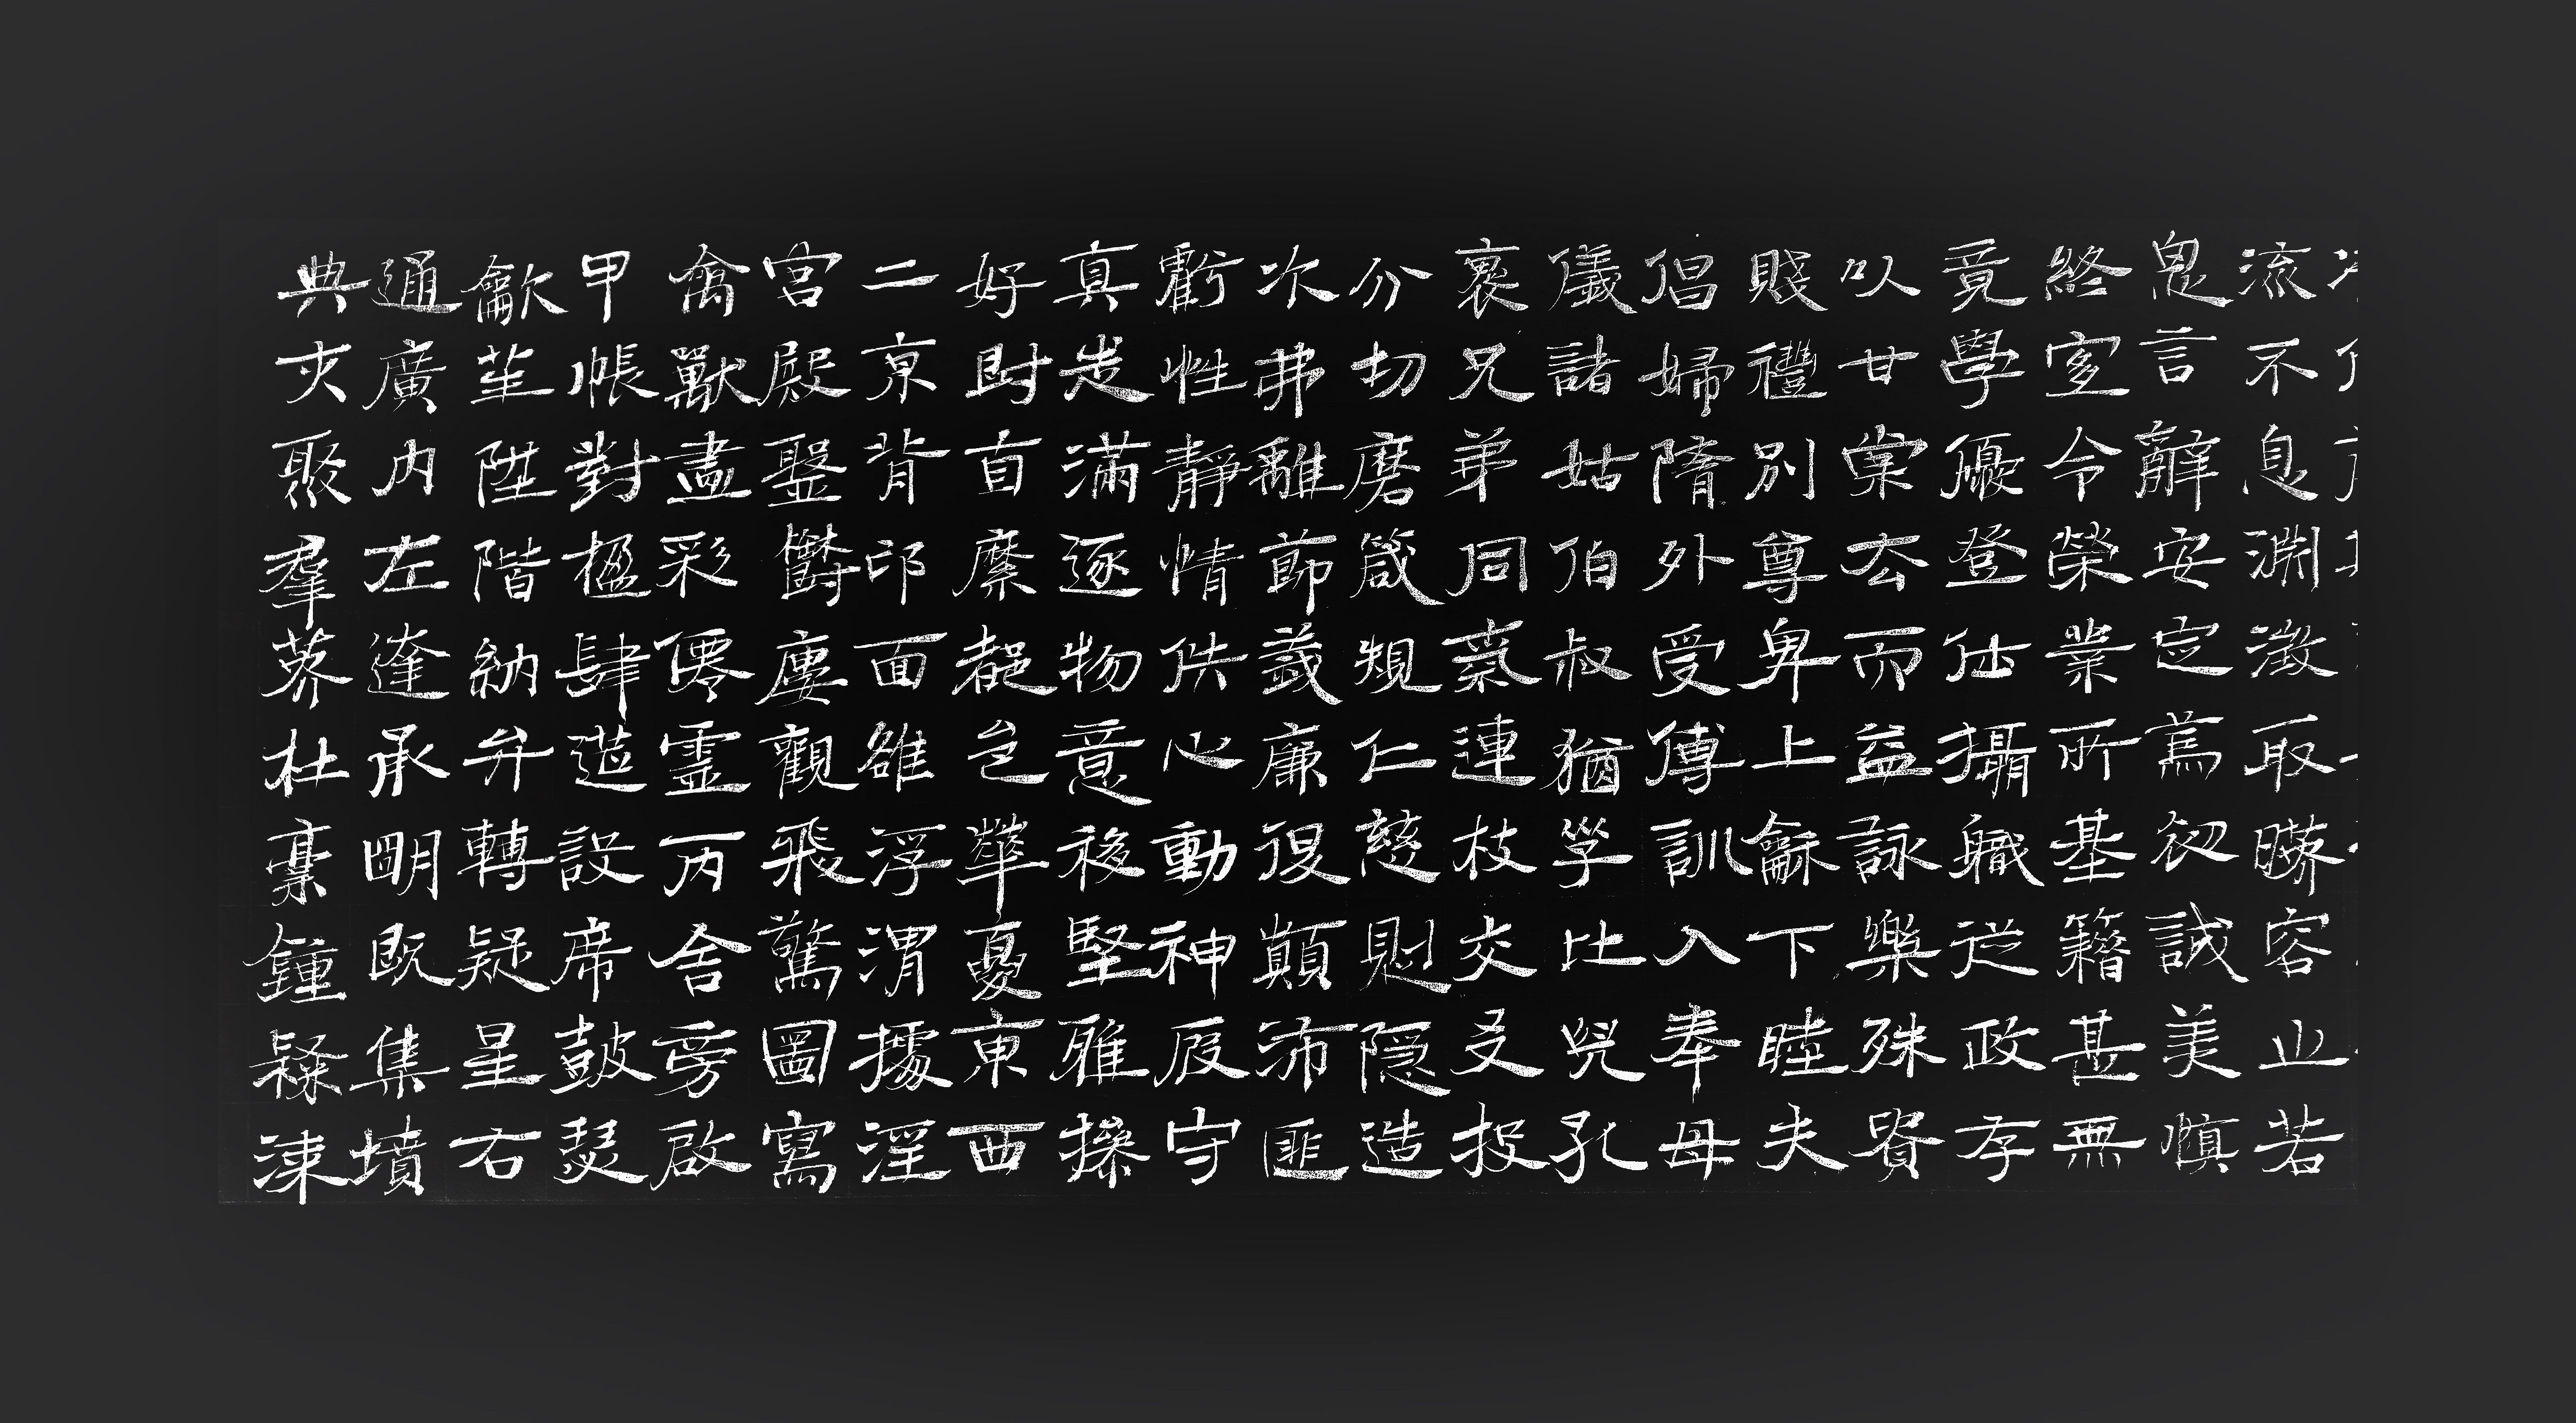 流不息淵澂取暎容止若
思言辭安定篤初誠美慎
終宜令榮業所基籍甚無
竟學優登仕攝職從政存
以甘棠去而益詠樂殊貴
賤禮別尊卑上龢下睦夫
倡婦隨外受傅訓入奉母
儀諸姑伯叔猶子比兒孔
褱兄弟同氣連枝交友投
分切磨箴規仁慈惻隱造
次弗離節義廉退顛沛匪
虧性靜情佚心動神疲守
真志滿逐物意移堅雅操
好爵自縻都邑華夏東西
二京背邙面雒浮渭據涇
宮殿盤鬱樓觀飛驚圖寫
禽獸畫彩僊靈丙舍旁啟
甲帳對楹肆筵設席鼓瑟
龡笙陞階納弁轉疑星右
通廣內左達承明既集墳
典亦聚羣英杜稾鍾隸漆